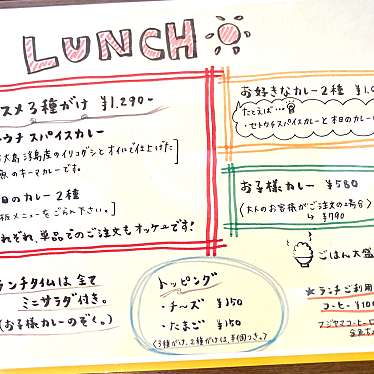 LUNCH
スメ3種がけ ¥1.290-
ウチ スパイスカレー
大島浮島産のイリコダシとオイルで仕上げた
魚のキーマカレーです。
日のカレー2種
板メニューをごらん下さい。
れぞれ、単品でのご注文もオッケーです!
お好きなカレー2種 ¥1.0
たとえば…
・セトウチスパイスカレーと本日のカレー
お子様カレー ¥580
(大人のお客様がご注文の場合)
↳ ¥790
ごはん大盛
ランチタイムは全て
ミニサラダ付き。
(お子様カレーのぞく。)
トッピング
・チーズ ¥150
・たまご ¥150
(3種がけ、2種がけは、半個つき。)
★ランチご利用
コーヒー ¥100
フジヤマコーヒーロ